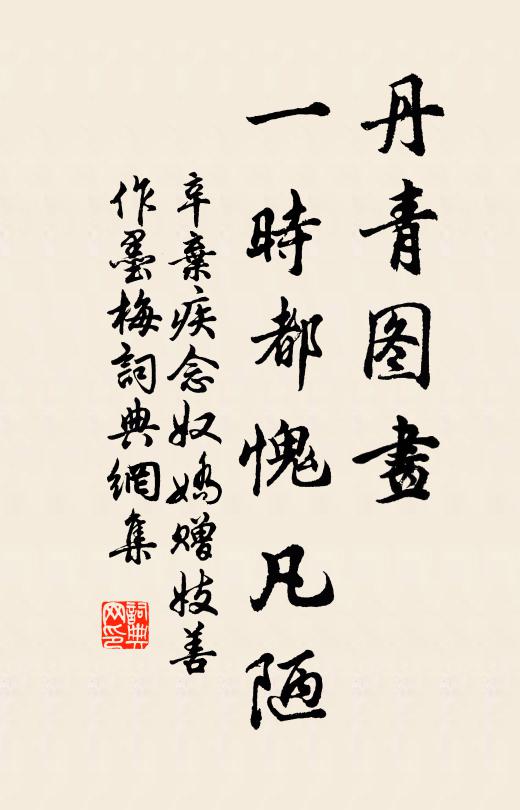 丹青图畫
一時都愧凡陋
辛棄疾念奴嬌贈妓善
作墨梅詞典網集
詞典网印